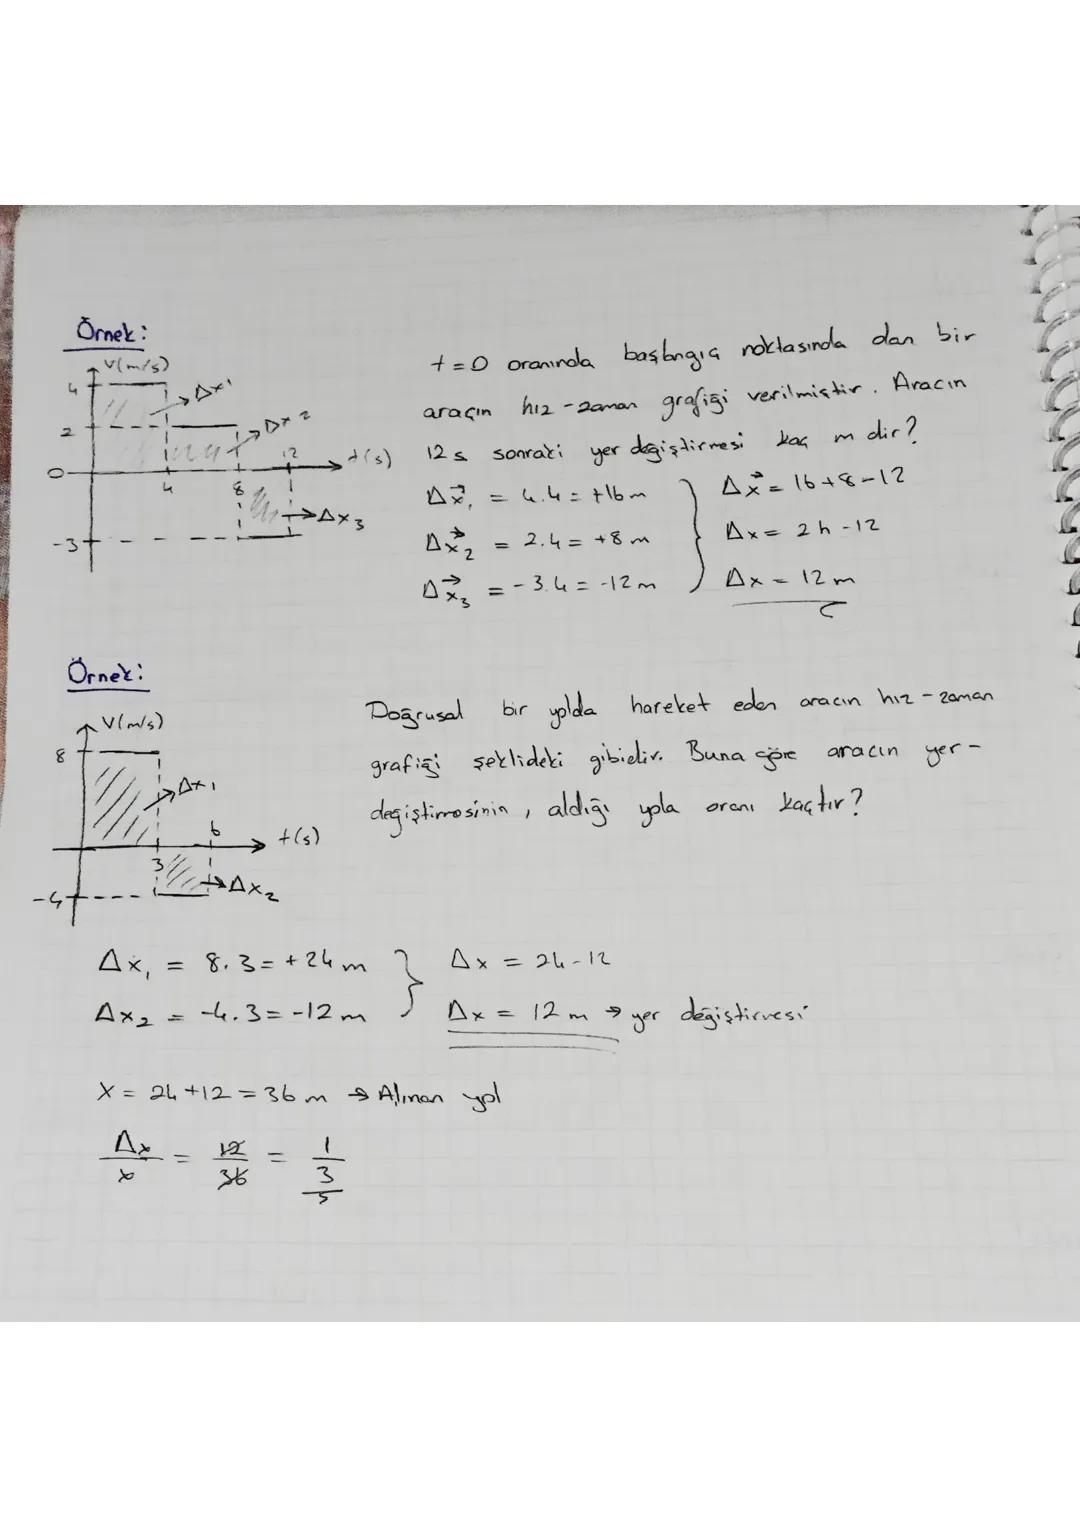 Örnek:
V(m/s)
4
Δx1
2
Δx2
0
4
8
12
t(s)
-3
Δx3
t=0 oranında başlangıç noktasında olan bir
araçın hız-zaman grafiği verilmiştir. Aracın
12 s sonraki yer değiştirmesi kaç m dir?
Δx₁ = 4.4 = +16m
Δx₂ = 2.4 = +8m
Δx₃ = -3.4 = -12m
Δx = 16+8-12
Δx = 24-12
Δx = 12m
Örnek:
V(m/s)
8
Δx1
6
t(s)
3
-4
Δx2
Doğrusal bir yolda hareket eden aracın hız-zaman
grafiği şeklideki gibidir. Buna göre aracın yer-
değiştirmesinin, aldığı yola oranı kaçtır?
Δx₁ = 8.3 = +24m
Δx₂ = -4.3 = -12m
Δx = 24-12
Δx = 12m → yer değiştirmesi
X = 24+12 = 36m → Alınan yol
Δx/x = 12/36 = 1/3